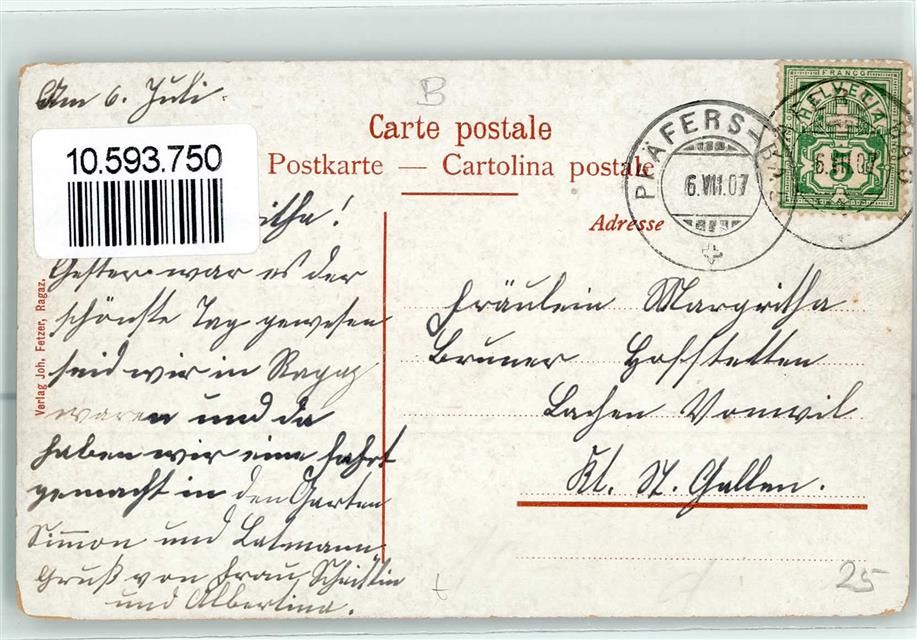 Am 6. Juli.
B
Carte postale
Postkarte — Cartolina postale
10.593.750
PFÄFERS-BAD
6.VII.07
FRANCO
HELVETIA
6.VII.07
Adresse
itha!
Gestern war es der
schönste Tag gewesen
seid wir in Ragaz
waren und da
haben wir eine fahrt
gemacht in den Garten
Simmon und
Gruß von Frau
und Albertina.
Fräulein Margritha
Bruner Hofstetten
Lachen Vonwil
Kt. St. Gallen.
Verlag Joh. Fetzer, Ragaz.
25